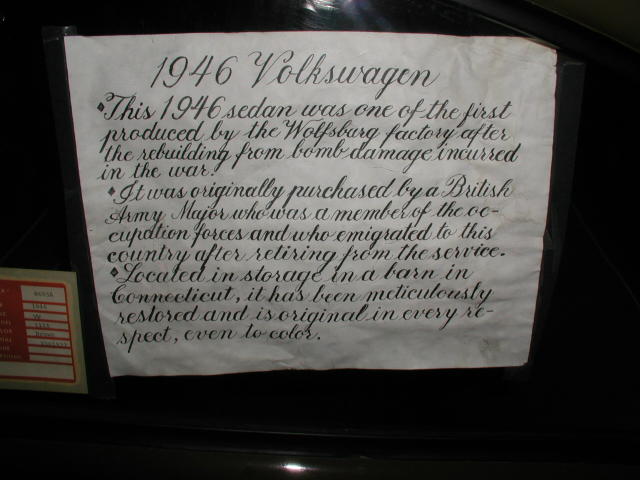 1946 Volkswagen
♦This 1946 sedan was one of the first
produced by the Wolfsburg factory after
the rebuilding from bomb damage incurred
in the war.
♦It was originally purchased by a British
Army Major who was a member of the oc-
cupation forces and who emigrated to this
country after retiring from the service.
♦Located in storage in a barn in
Connecticut, it has been meticulously
restored and is original in every re-
spect, even to color.